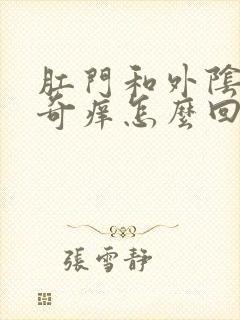 肛門和外陰
奇癢怎麼回
張雪靜